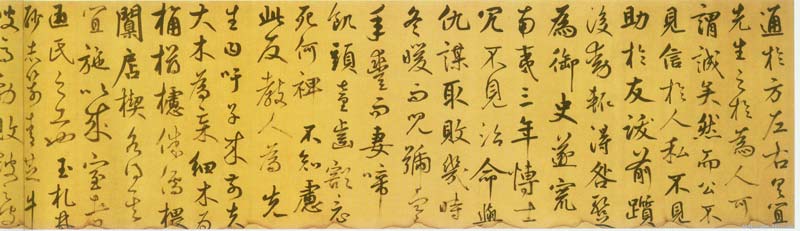 通於方左右具宜
先生之於為人可
謂誠矣然而公不
見信於人私不見
助於友跋前躓
後動輒得咎暫
為御史遂竄
南夷三年博士
冗不見治命與
仇謀取敗幾時
冬暖而兒號寒
年豐而妻啼
飢頭童齒豁竟
死何裨 不知慮
此反教人為 先
生曰吁子來前夫
大木為杗細木為
桷欂櫨侏儒椳
闑扂楔各得其
宜施以成室者
匠氏之工也 玉札丹
砂赤箭青芝牛
溲馬勃敗